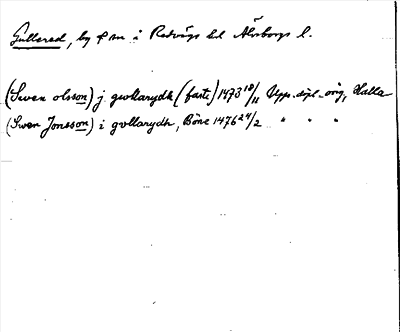 Gullered, by o sn i Redvägs hd Älvsborgs l.
(Swen olsson) j gwllarydh (faste) 1473 18/11 Upps. dipl. orig, Halla
(Swen Jonsson) i gvllarydh, Böne 1476 24/2 " " "